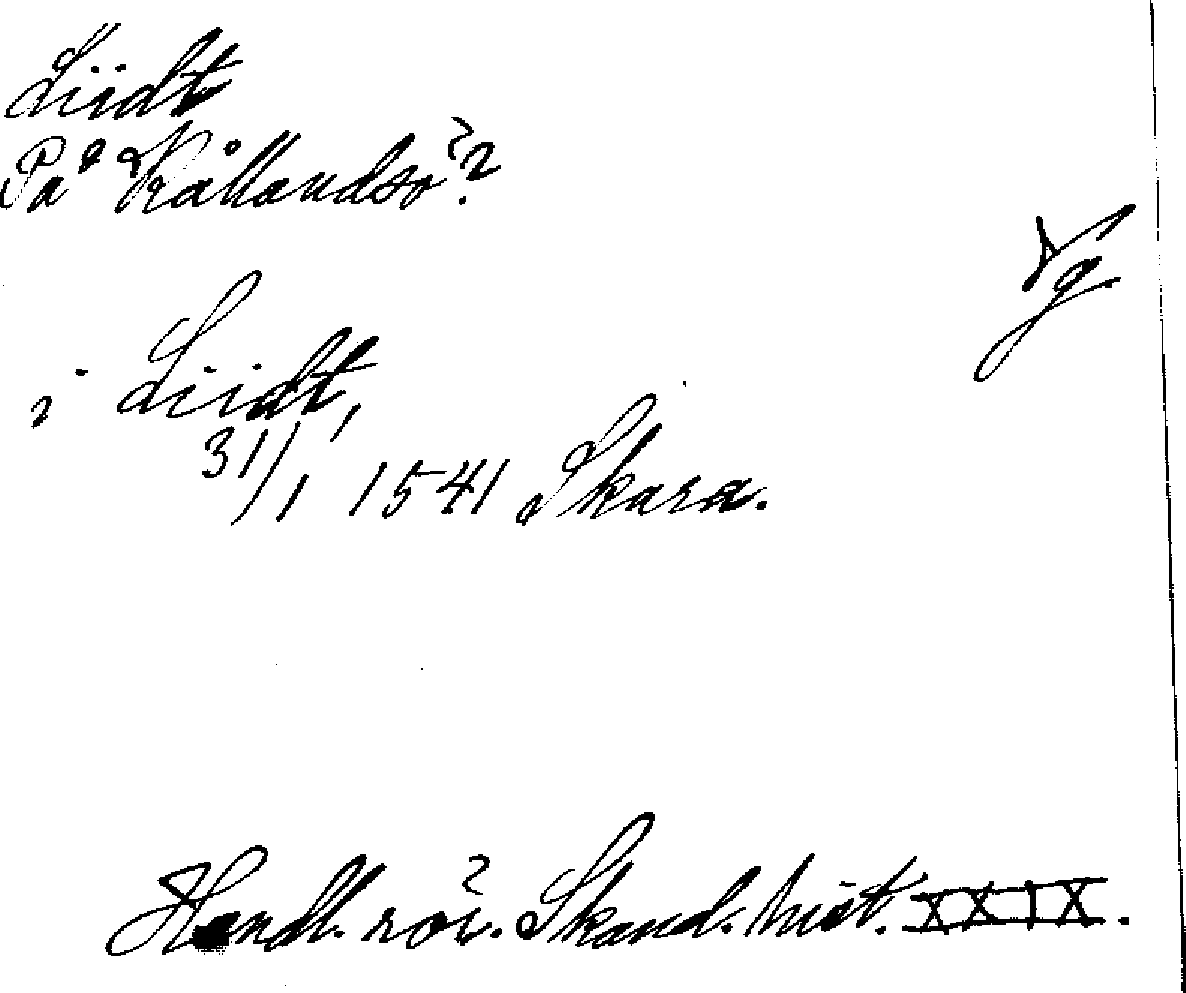 Liidt
På Kållandsö?
Vg
i Liidt,
31/1 1541 Skara.
Handl. rör. Skand. hist. XXIX.